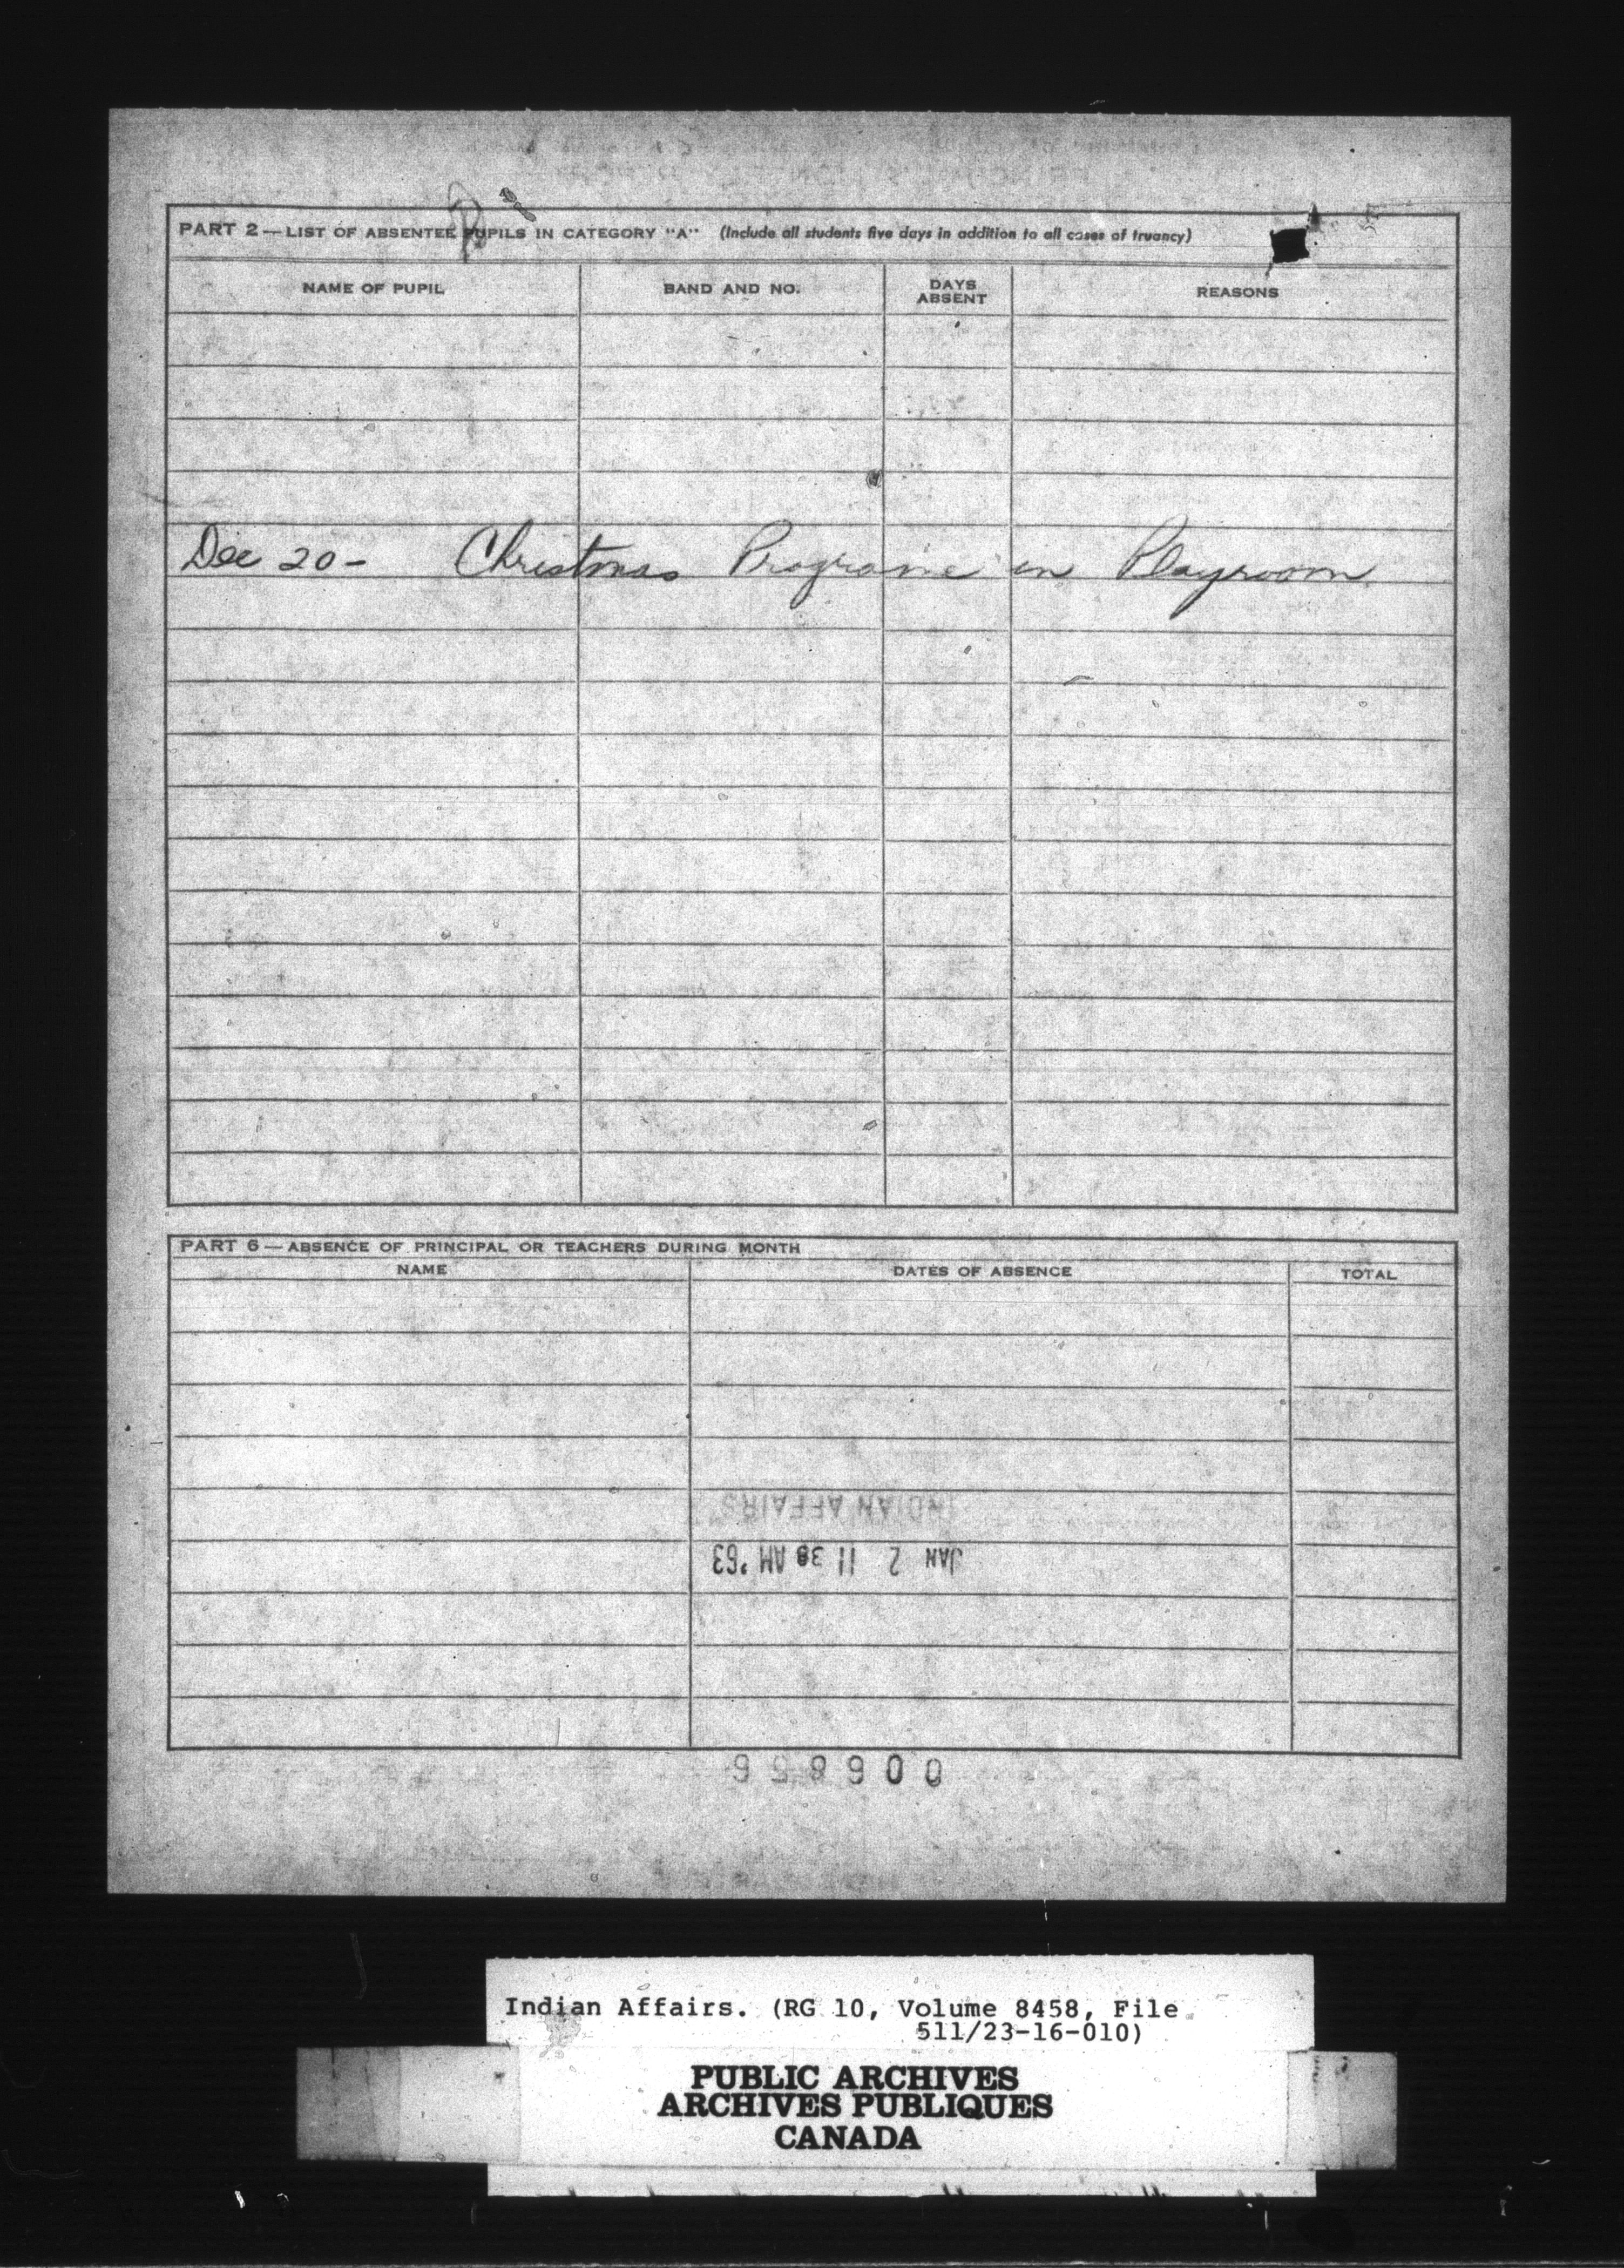 PART 2—LIST OF ABSENTEE PUPILS IN CATEGORY "A" (Include all students five days in addition to all cases of truancy)
NAME OF PUPIL BAND AND NO. DAYS ABSENT REASONS
Dec 20- Christmas Programe in Playroom
PART 6—ABSENCE OF PRINCIPAL OR TEACHERS DURING MONTH
NAME DATES OF ABSENCE TOTAL
INDIAN AFFAIRS
JAN 2 11 38 AM '63
Indian Affairs. (RG 10, Volume 8458, File
511/23-16-010)
PUBLIC ARCHIVES
ARCHIVES PUBLIQUES
CANADA